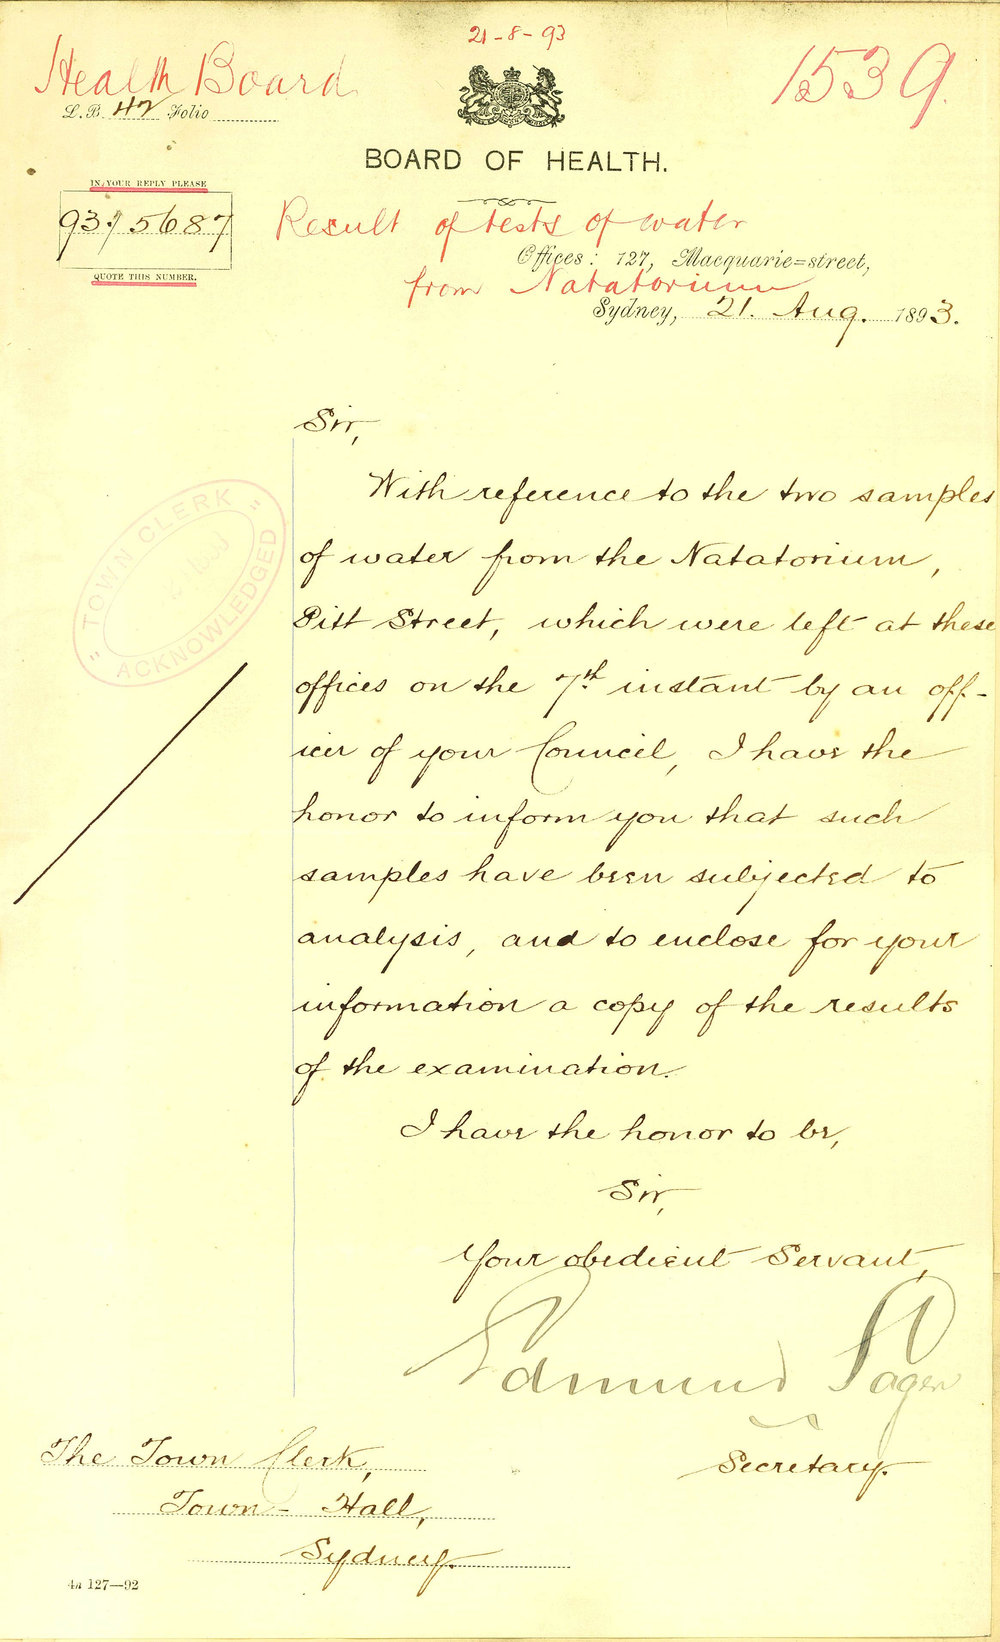 21-8-93
Health Board
1539.
L.B. 42 Folio
BOARD OF HEALTH.
IN YOUR REPLY PLEASE
93/5687
QUOTE THIS NUMBER.
Result of tests of water
Offices: 127, Macquarie=street,
from Natatorium
Sydney, 21. Aug. 1893.
Sir,
With reference to the two samples
of water from the Natatorium,
Pitt Street, which were left at these
offices on the 7th instant by an off-
icer of your Council, I have the
honor to inform you that such
samples have been subjected to
analysis, and to enclose for your
information a copy of the results
of the examination.
"TOWN CLERK"
ACKNOWLEDGED
I have the honor to be,
Sir,
Your obedient Servant,
Edmund Sager
Secretary.
The Town Clerk,
Town-Hall,
Sydney.
4a 127—92